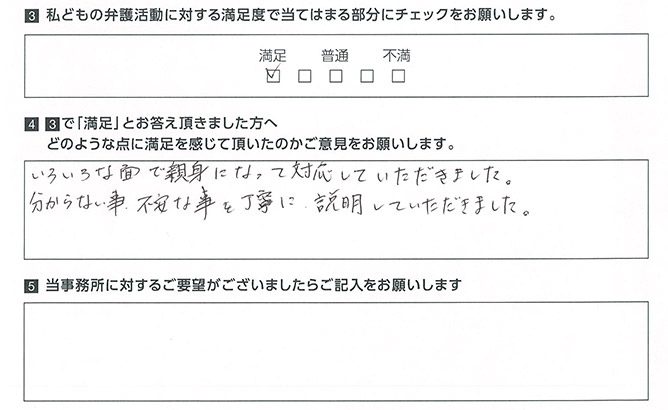 3 私どもの弁護活動に対する満足度で当てはまる部分にチェックをお願いします。
満足 普通 不満
☑ □ □ □ □
4 3で「満足」とお答え頂きました方へ
どのような点に満足を感じて頂いたのかご意見をお願いします。
いろいろな面で親身になって対応していただきました。
分からない事、不安な事を丁寧に、説明していただきました。
5 当事務所に対するご要望がございましたらご記入をお願いします